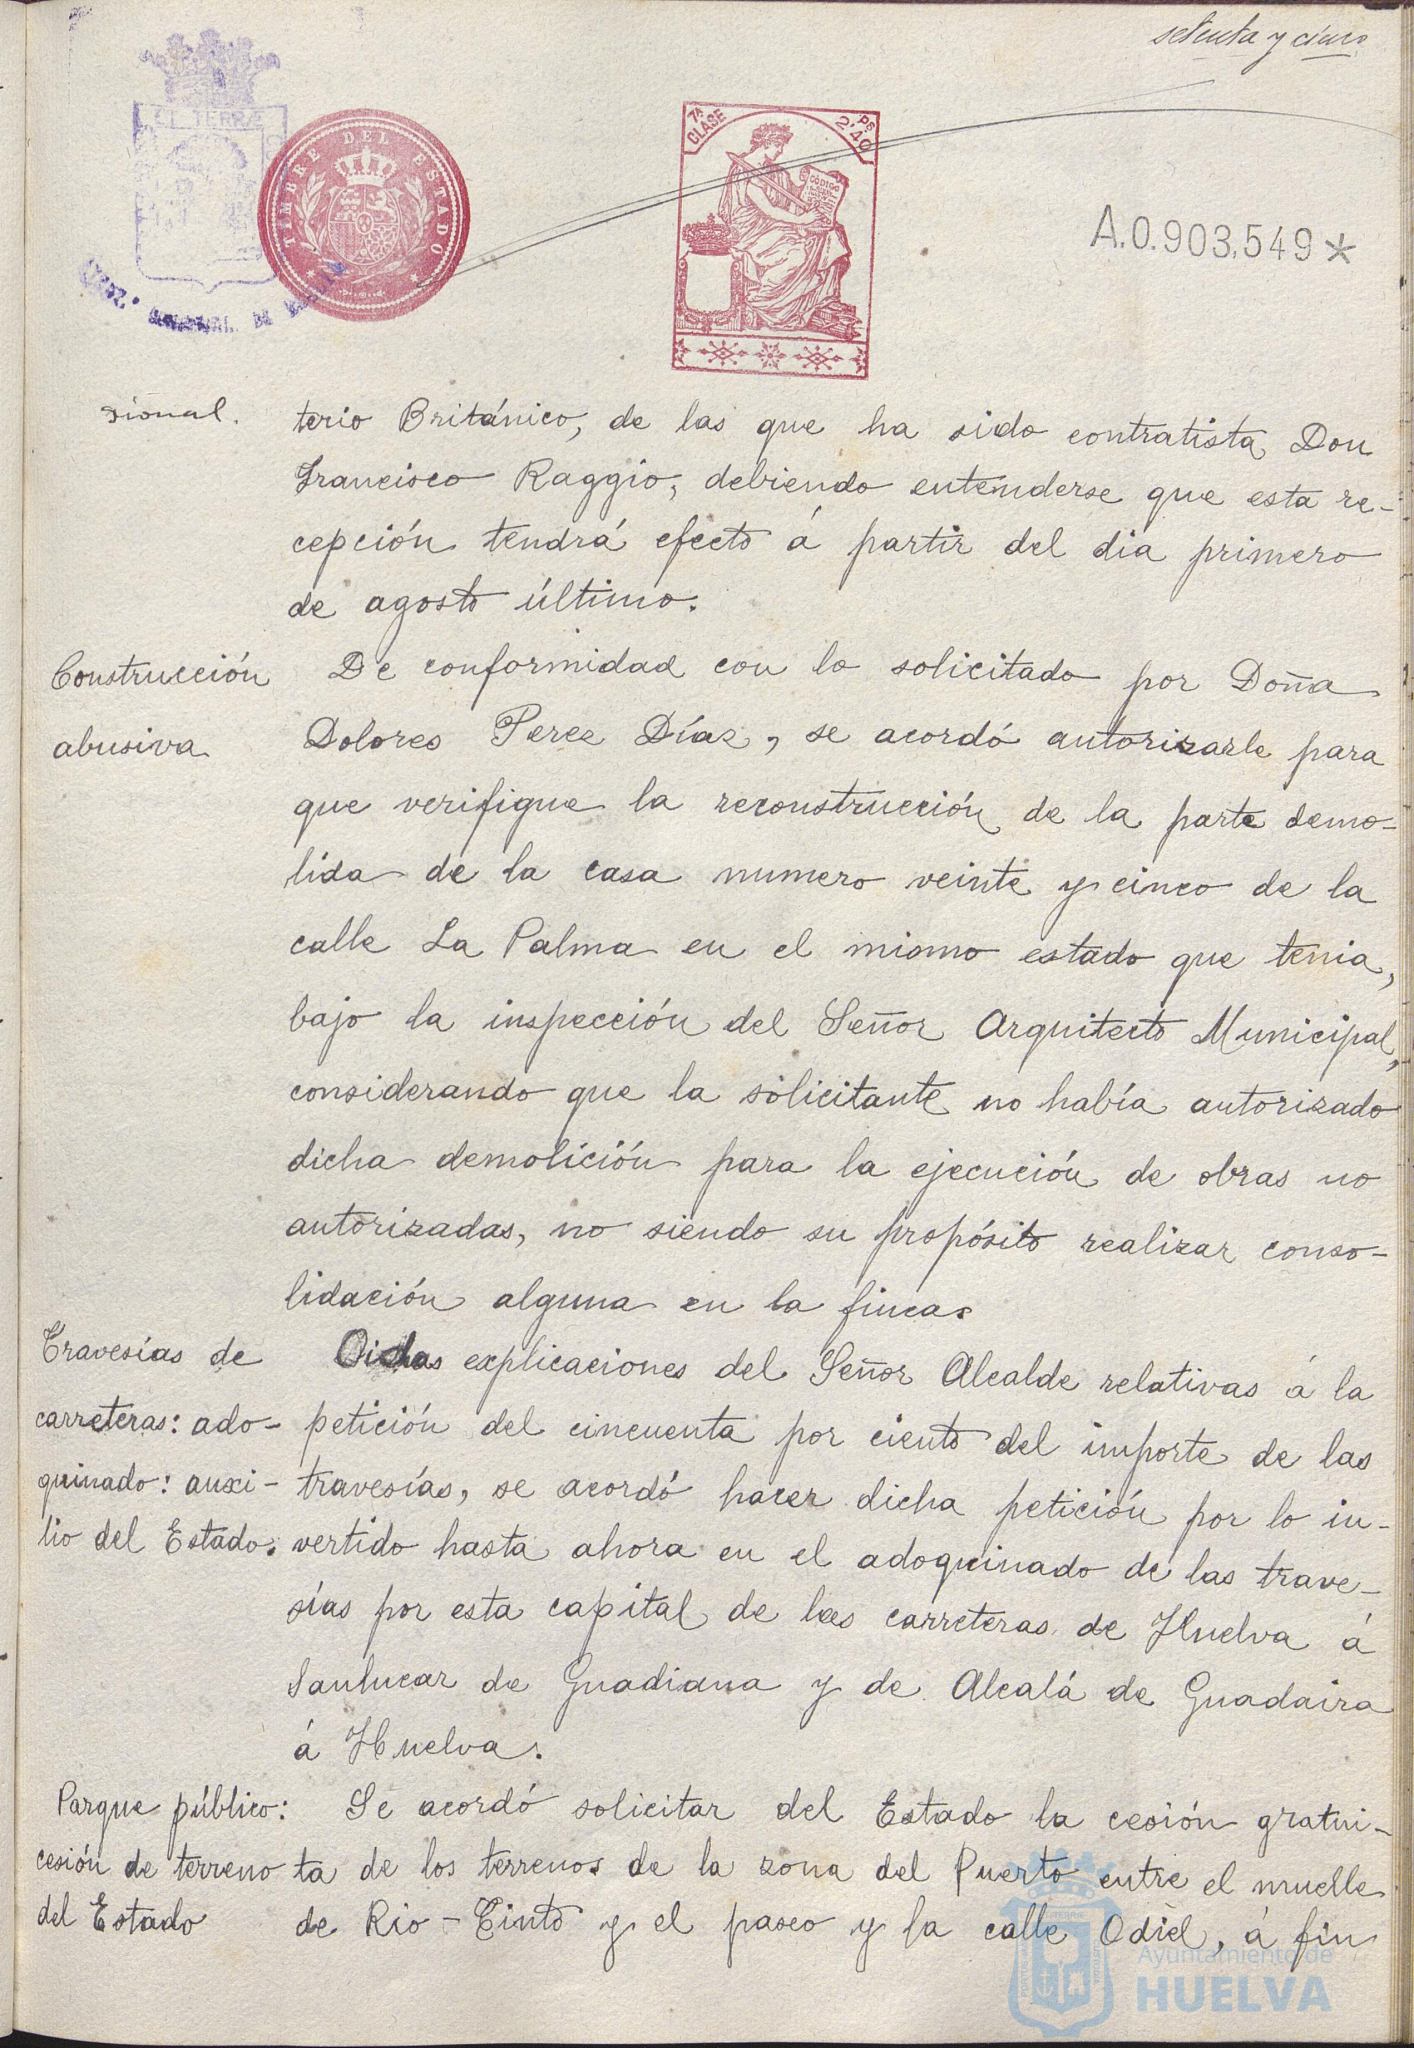 setenta y cinco
TIMBRE DEL ESTADO
7ª CLASE
Ps. 2'40
CODIGO
A.0.903,549*
sional. terio Británico, de las que ha sido contratista Don
Francisco Raggio, debiendo entenderse que esta re-
cepción tendrá efecto á partir del dia primero
de agosto último.
Construcción De conformidad con lo solicitado por Doña
abusiva Dolores Perez Díaz, se acordó autorizarle para
que verifique la reconstrucción de la parte demo-
lida de la casa numero veinte y cinco de la
calle La Palma en el mismo estado que tenia,
bajo la inspección del Señor Arquitecto Municipal,
considerando que la solicitante no había autorizado
dicha demolición para la ejecución de obras no
autorizadas, no siendo su propósito realizar conso-
lidación alguna en la finca.
Travesías de Oidas explicaciones del Señor Alcalde relativas á la
carreteras: ado- petición del cincuenta por ciento del importe de las
quinado: auxi- travesías, se acordó hacer dicha petición por lo in-
lio del Estado. vertido hasta ahora en el adoquinado de las trave-
sías por esta capital de las carreteras de Huelva á
Sanlucar de Guadiana y de Alcalá de Guadaira
á Huelva.
Parque público: Se acordó solicitar del Estado la cesión gratui-
cesión de terreno ta de los terrenos de la zona del Puerto entre el muelle
del Estado de Rio-Tinto y el paseo y la calle Odiel, á fin
Ayuntamiento de
HUELVA